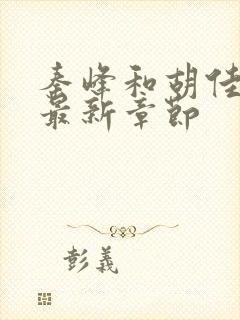 秦峰和胡佳
最新章节
彭义